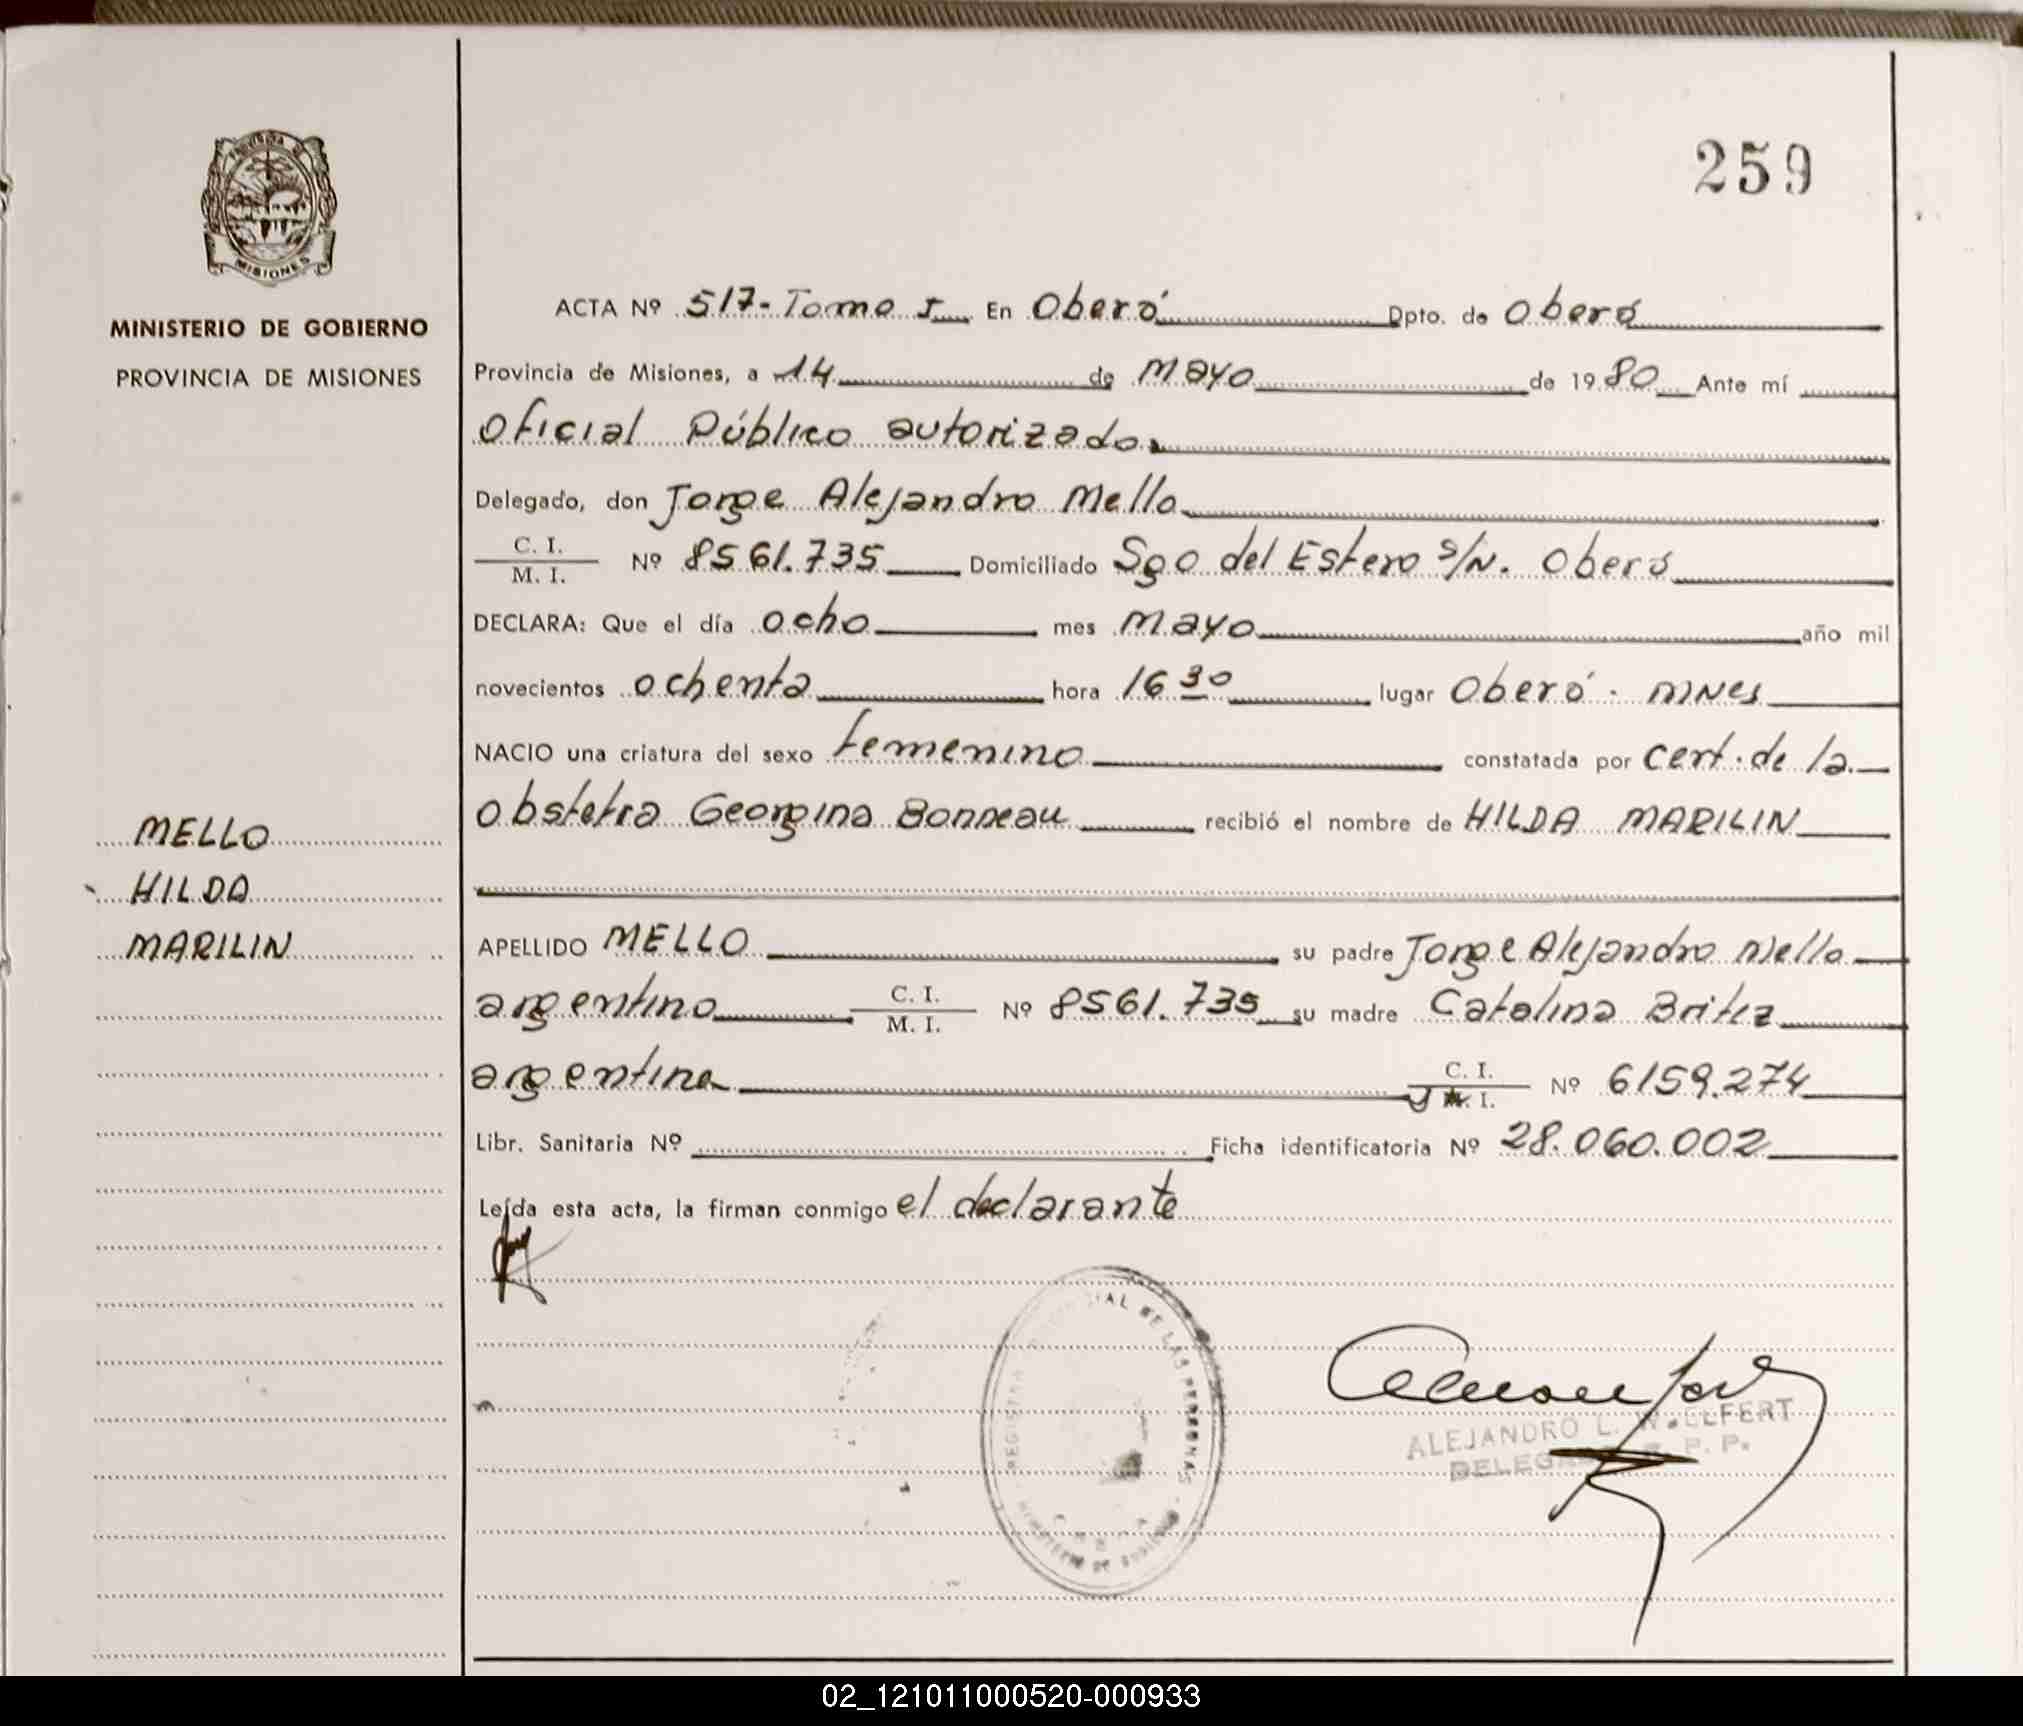 259
PROVINCIA DE
MISIONES
MINISTERIO DE GOBIERNO
PROVINCIA DE MISIONES
ACTA Nº 517- Tomo I En Oberá Dpto. de Oberá
Provincia de Misiones, a 14 de Mayo de 1980 Ante mí
Oficial Público autorizado
Delegado, don Jorge Alejandro Mello
C. I.
M. I. Nº 8561.735 Domiciliado Sgo del Estero s/N. Oberá
DECLARA: Que el día ocho mes Mayo año mil
novecientos ochenta hora 16 30 lugar Oberá. MNes
NACIO una criatura del sexo femenino constatada por cert. de la
obstetra Georgina Bonneau recibió el nombre de HILDA MARILIN
MELLO
HILDA
MARILIN
APELLIDO MELLO su padre Jorge Alejandro Mello
argentino C. I.
M. I. Nº 8561.735 su madre Catalina Britez
argentina C. I.
I. Nº 6159.274
Libr. Sanitaria Nº Ficha identificatoria Nº 28.060.002
Leída esta acta, la firman conmigo el declarante
DE LAS PERSONAS
MINISTERIO DE GOBIERNO
ALEJANDRO L.
DELEGADO R. P. P.
02_121011000520-000933